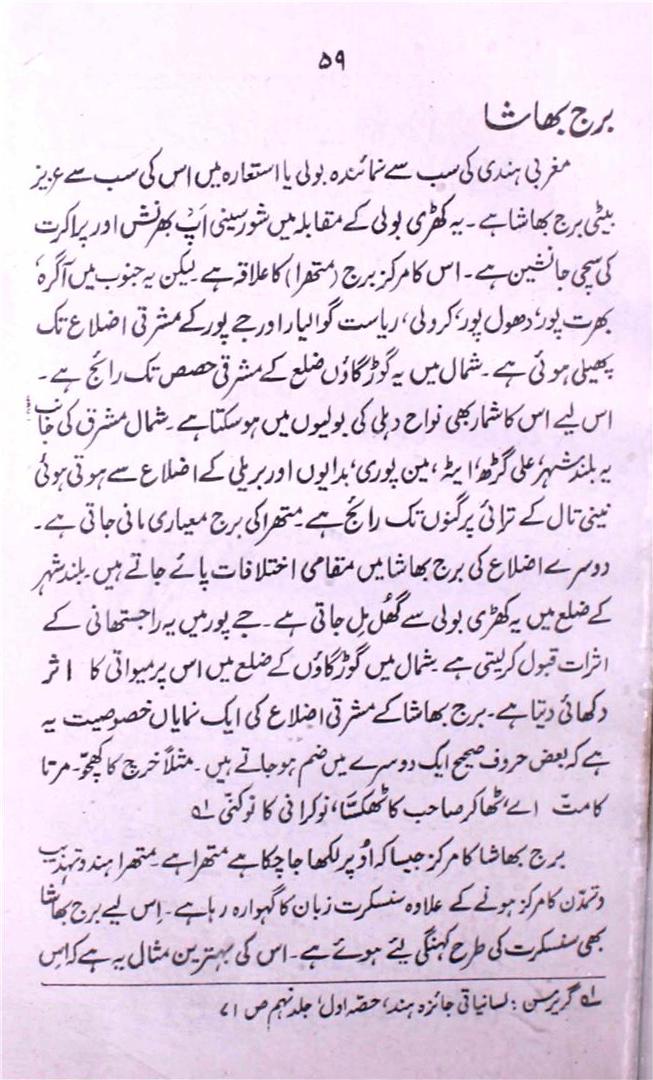 ۵۹
برج بھاشا
مغربی ہندی کی سب سے نمائندہ بولی یا استعارہ میں اس کی سب سے عزیز
بیٹی برج بھاشا ہے۔ یہ کھڑی بولی کے مقابلہ میں شورسینی اَپ بھرنش اور پراکرت
کی سچی جانشین ہے۔ اس کا مرکز برج (متھرا) کا علاقہ ہے۔ لیکن یہ جنوب میں آگرہ،
بھرت پور، دھول پور، کرولی، ریاست گوالیار اور جے پور کے مشرقی اضلاع تک
پھیلی ہوئی ہے۔ شمال میں یہ گوڑگاؤں ضلع کے مشرقی حصص تک رائج ہے۔
اس لیے اس کا شمار بھی نواح دہلی کی بولیوں میں ہوسکتا ہے۔ شمال مشرق کی جانب
یہ بلند شہر، علی گڑھ، ایٹہ، مین پوری، بدایوں اور بریلی کے اضلاع سے ہوتی ہوئی
نینی تال کے ترائی پرگنوں تک رائج ہے۔ متھرا کی برج معیاری مانی جاتی ہے۔
دوسرے اضلاع کی برج بھاشا میں مقامی اختلافات پائے جاتے ہیں۔ بلند شہر
کے ضلع میں یہ کھڑی بولی سے گھُل مِل جاتی ہے۔ جے پور میں یہ راجستھانی کے
اثرات قبول کرلیتی ہے۔ شمال میں گوڑگاؤں کے ضلع میں اس پر میواتی کا اثر
دکھائی دیتا ہے۔ برج بھاشا کے مشرقی اضلاع کی ایک نمایاں خصوصیت یہ
ہے کہ بعض حروف صحیح ایک دوسرے میں ضم ہوجاتے ہیں۔ مثلاً خرچ کا کھچّو۔ مرتا
کا متّ اے، ٹھاکر صاحب کا ٹھکسّا، نوکرانی کا نوکنّی ؎۱
برج بھاشا کا مرکز جیسا کہ اوُپر لکھا جاچکا ہے متھرا ہے۔ متھرا ہندو تہذیب
و تمدّن کا مرکز ہونے کے علاوہ سنسکرت زبان کا گہوارہ رہا ہے۔ اِس لیے برج بھاشا
بھی سنسکرت کی طرح کہنگی لیے ہوئے ہے۔ اس کی بہترین مثال یہ ہے کہ اس
؎۱ گریرسن: لسانیاتی جائزہ ہند، حصّہ اول، جلد نہم ص ۷۱